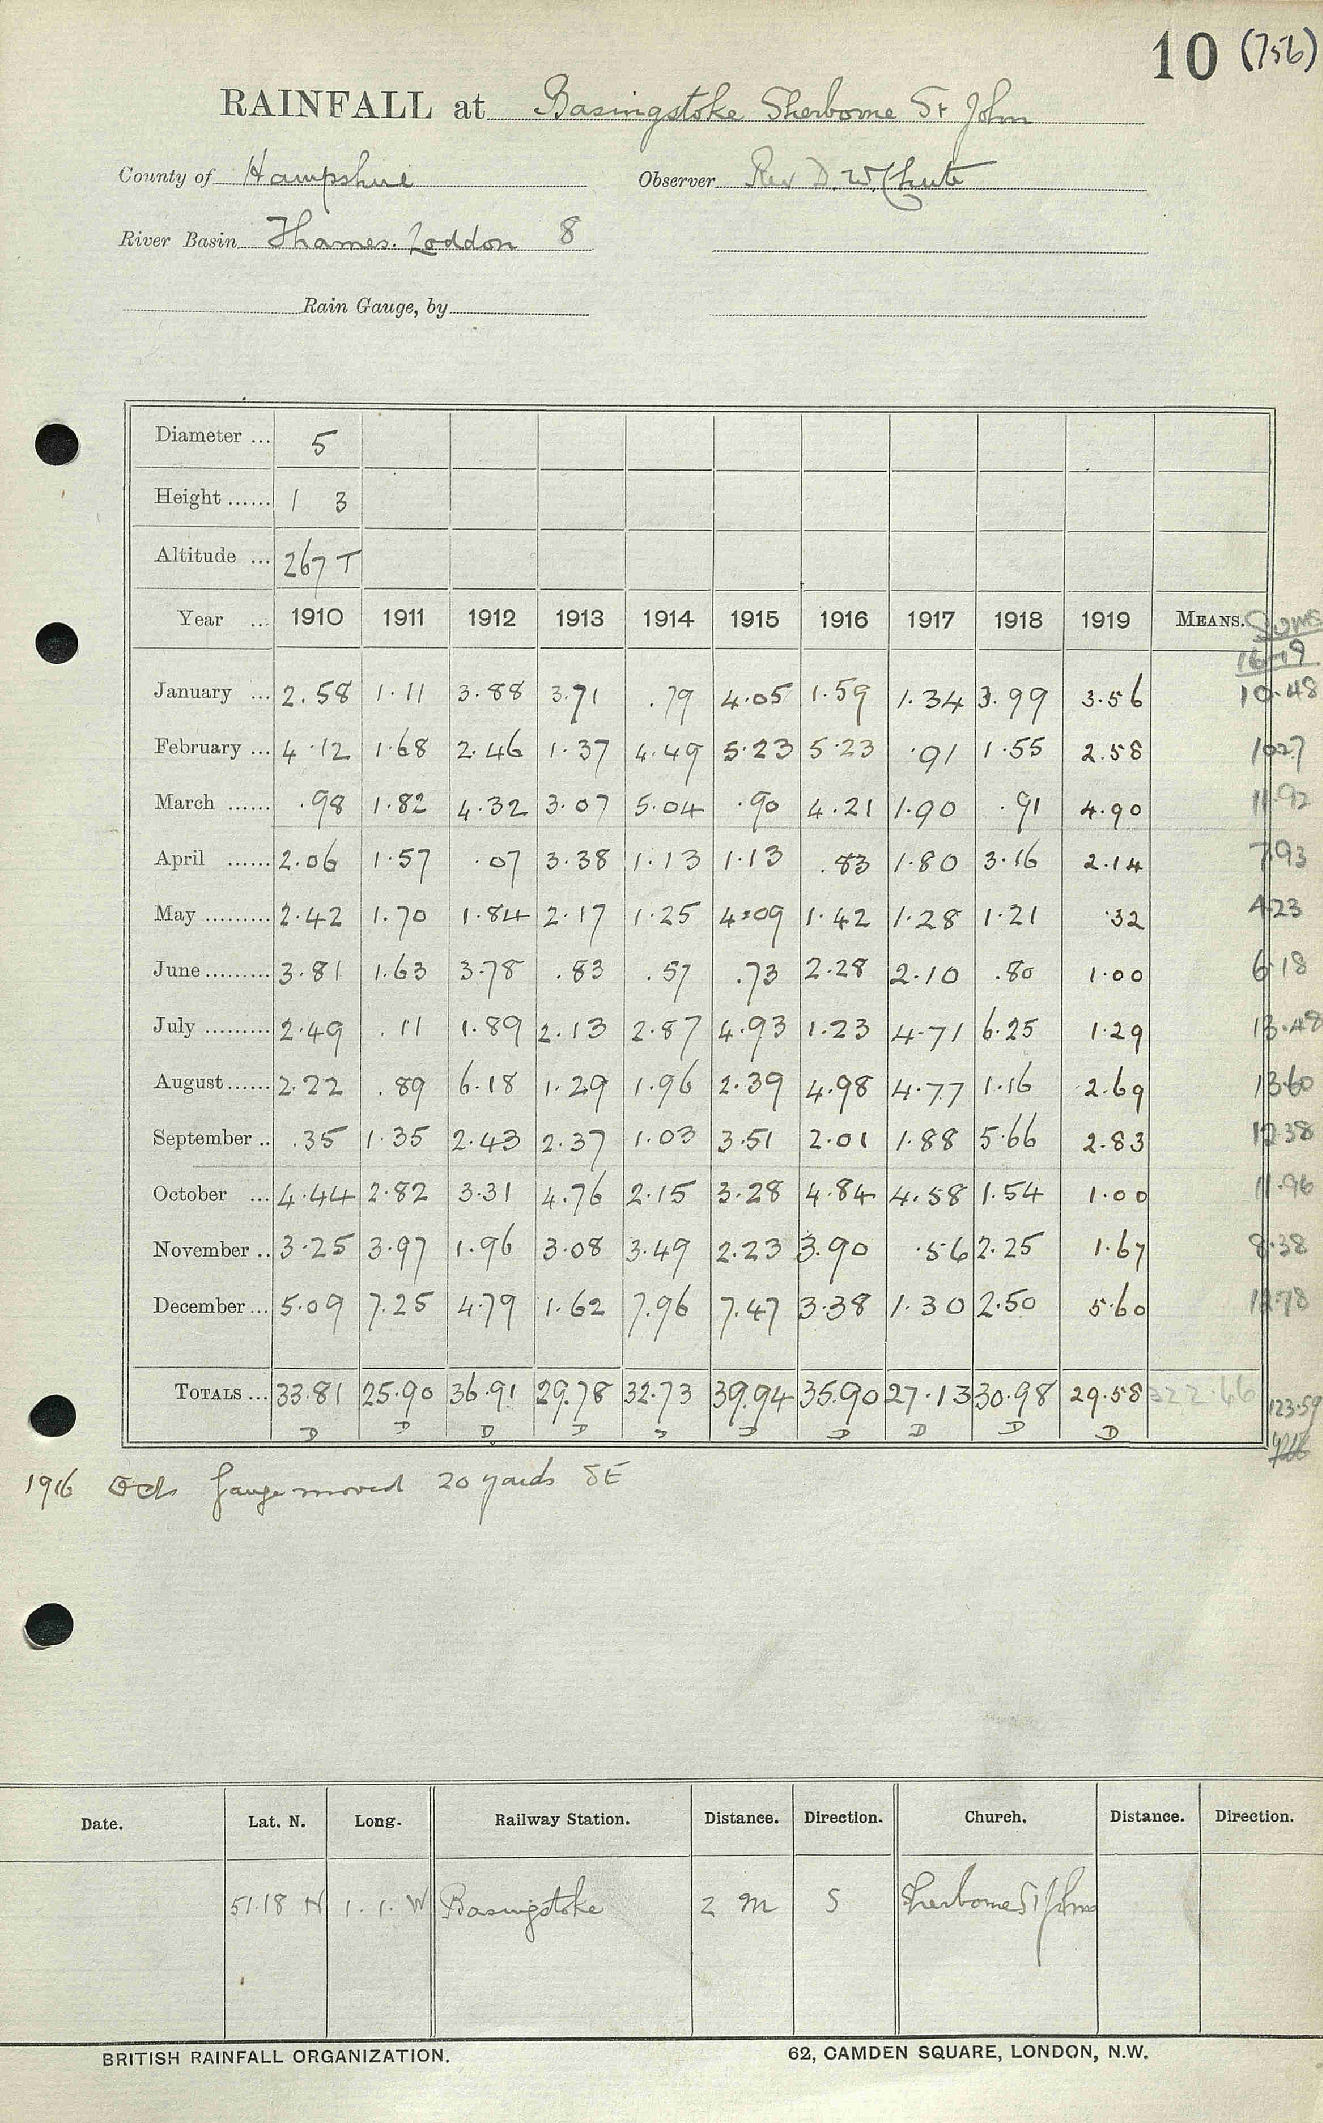 10 (756)
RAINFALL at Basingstoke Sherborne St John
County of Hampshire Observer Rev D. W. Chute
River Basin Thames. Loddon 8
Rain Gauge, by
Diameter ... 5
Height ...... 1 3
Altitude ... 267 T
Year ... 1910 1911 1912 1913 1914 1915 1916 1917 1918 1919 MEANS. Sums
16-19
January ... 2.58 1.11 3.88 3.71 .79 4.05 1.59 1.34 3.99 3.56 10.48
February ... 4.12 1.68 2.46 1.37 4.49 5.23 5.23 .91 1.55 2.58 10.27
March ...... .98 1.82 4.32 3.07 5.04 .90 4.21 1.90 .91 4.90 11.92
April ...... 2.06 1.57 .07 3.38 1.13 1.13 .83 1.80 3.16 2.14 7.93
May ......... 2.42 1.70 1.84 2.17 1.25 4.09 1.42 1.28 1.21 .32 4.23
June ......... 3.81 1.63 3.78 .83 .57 .73 2.28 2.10 .80 1.00 6.18
July ......... 2.49 .11 1.89 2.13 2.87 4.93 1.23 4.71 6.25 1.29 13.48
August ...... 2.22 .89 6.18 1.29 1.96 2.39 4.98 4.77 1.16 2.69 13.60
September .. .35 1.35 2.43 2.37 1.03 3.51 2.01 1.88 5.66 2.83 12.38
October ... 4.44 2.82 3.31 4.76 2.15 3.28 4.84 4.58 1.54 1.00 11.96
November .. 3.25 3.97 1.96 3.08 3.49 2.23 3.90 .56 2.25 1.67 8.38
December ... 5.09 7.25 4.79 1.62 7.96 7.47 3.38 1.30 2.50 5.60 12.78
TOTALS ... 33.81 25.90 36.91 29.78 32.73 39.94 35.90 27.13 30.98 29.58 322.66 123.59
D D D D D D D D D D
1916 Oct Gauge moved 20 yards SE
Date. Lat. N. Long. Railway Station. Distance. Direction. Church. Distance. Direction.
51.18 N 1. 1. W Basingstoke 2 m S Sherborne St John
BRITISH RAINFALL ORGANIZATION. 62, CAMDEN SQUARE, LONDON, N.W.